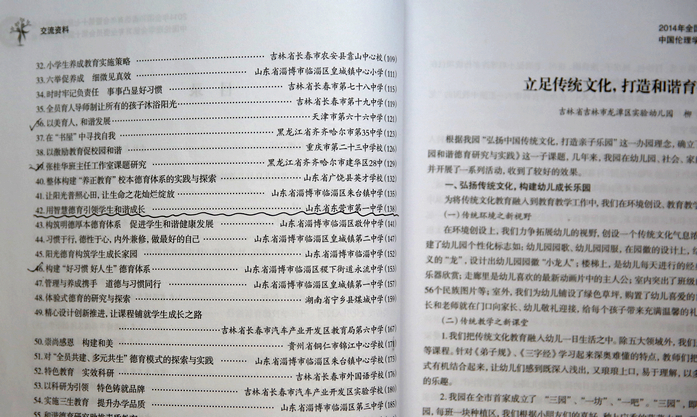 交流资料
32. 小学生养成教育实施策略 吉林省长春市农安县靠山中心校(109)
33. 六举促养成 细微见真效 山东省淄博市临淄区皇城镇中心小学(111)
34. 时时牢记负责任 事事凸显好习惯 吉林省长春市第七十八中学(115)
35. 全员育人导师制让所有的孩子沐浴阳光 吉林省长春市第十九中学(119)
36. 以美育人，和谐发展 天津市第六十六中学(121)
37. 在“书屋”中寻找自我 黑龙江省齐齐哈尔市第35中学(123)
38. 以激励教育促校园和谐 重庆市第二十三中学校(126)
39. 张桂华班主任工作室课题研究 黑龙江省齐齐哈尔市建华区28中(129)
40. 整体构建“养正教育”校本德育体系的实践与探索 山东省广饶县英才学校(132)
41. 让阳光普照心田，让生命之花灿烂绽放 山东省淄博市临淄区朱台镇中学(135)
42. 用智慧德育引领学生和谐成长 山东省东营市第一中学(138)
43. 构筑明德厚本德育体系 促进学生和谐健康发展 山东省淄博市临淄区敬仲中学(141)
44. 习惯于行，德性于心，内外兼修，做最好的自己 山东省淄博市临淄区皇城镇第二中学(147)
45. 阳光德育构筑学生成长家园 山东省淄博市临淄区朱台镇中学(150)
46. 构建“好习惯 好人生”德育体系 山东省淄博市临淄区稷下街道永流中学(153)
47. 管理与养成携手 道德与习惯同行 山东省淄博市临淄区皇城镇第一中学(157)
48. 体验式德育的研究与探索 湖南省宁乡县煤城中学(159)
49. 精心设计创新推进，让课程铺就学生成长之路
吉林省长春市汽车产业开发区教育局第六中学(167)
50. 崇尚感恩 构建和美 贵州省铜仁市锦江中心学校(171)
51. 对“全员共建、多元共生”德育模式的探索与实践 山东省淄博市临淄区朱台镇中心学校(173)
52. 特色教育 实效科研 吉林省长春市外国语学校(176)
53. 以科研为引领 特色铸就品牌 吉林省长春市汽车产业开发区实验学校(180)
54. 实施三生教育 提升办学品质 山东省淄博市临淄区第三中学(185)
2014年全国
中国伦理学
立足传统文化，打造和谐育
吉林省吉林市龙潭区实验幼儿园 柳
根据我园“弘扬中国传统文化，打造亲子乐园”这一办园理念，确立了
园和谐德育研究与实践》这一子课题，几年来，我园在幼儿园、社会、家庭
并开展了一系列活动，收到了较好的效果。
一、弘扬传统文化，构建幼儿成长乐园
为将传统文化教育融入到教育教学工作中，我们在环境创设、教育教学
(一) 传统环境之新视野
在环境创设上，我们力争拓展幼儿的视野，创设一个传统文化气息浓
建了幼儿园个性化标志如：幼儿园园歌、幼儿园园服，在园徽的设计上，结
义的“龙”，设计出幼儿园园徽“小龙人”；楼梯上，是幼儿每天进行的经
乐器欣赏；走廊里是幼儿喜欢的最新动画片中的主人公；室内突出了班级
56个民族图片等；室外，我们为幼儿铺设了绿色草坪，购置了幼儿喜爱的
长和老师就在门口向家长、幼儿敬礼迎接，给每个孩子带来充满温馨的礼
(二) 传统教学之新课堂
1.我们把传统文化教育融入幼儿一日生活之中，除五大领域外，我们
等课程。针对《弟子规》、《三字经》学习起来深奥难懂的特点，教师们
式有机结合起来，让幼儿们感到既深入浅出，又琅琅上口，易于理解，
的乐趣。
2.我园在全市首家成立了“三园”、“一坊”、“一吧”，“三园”